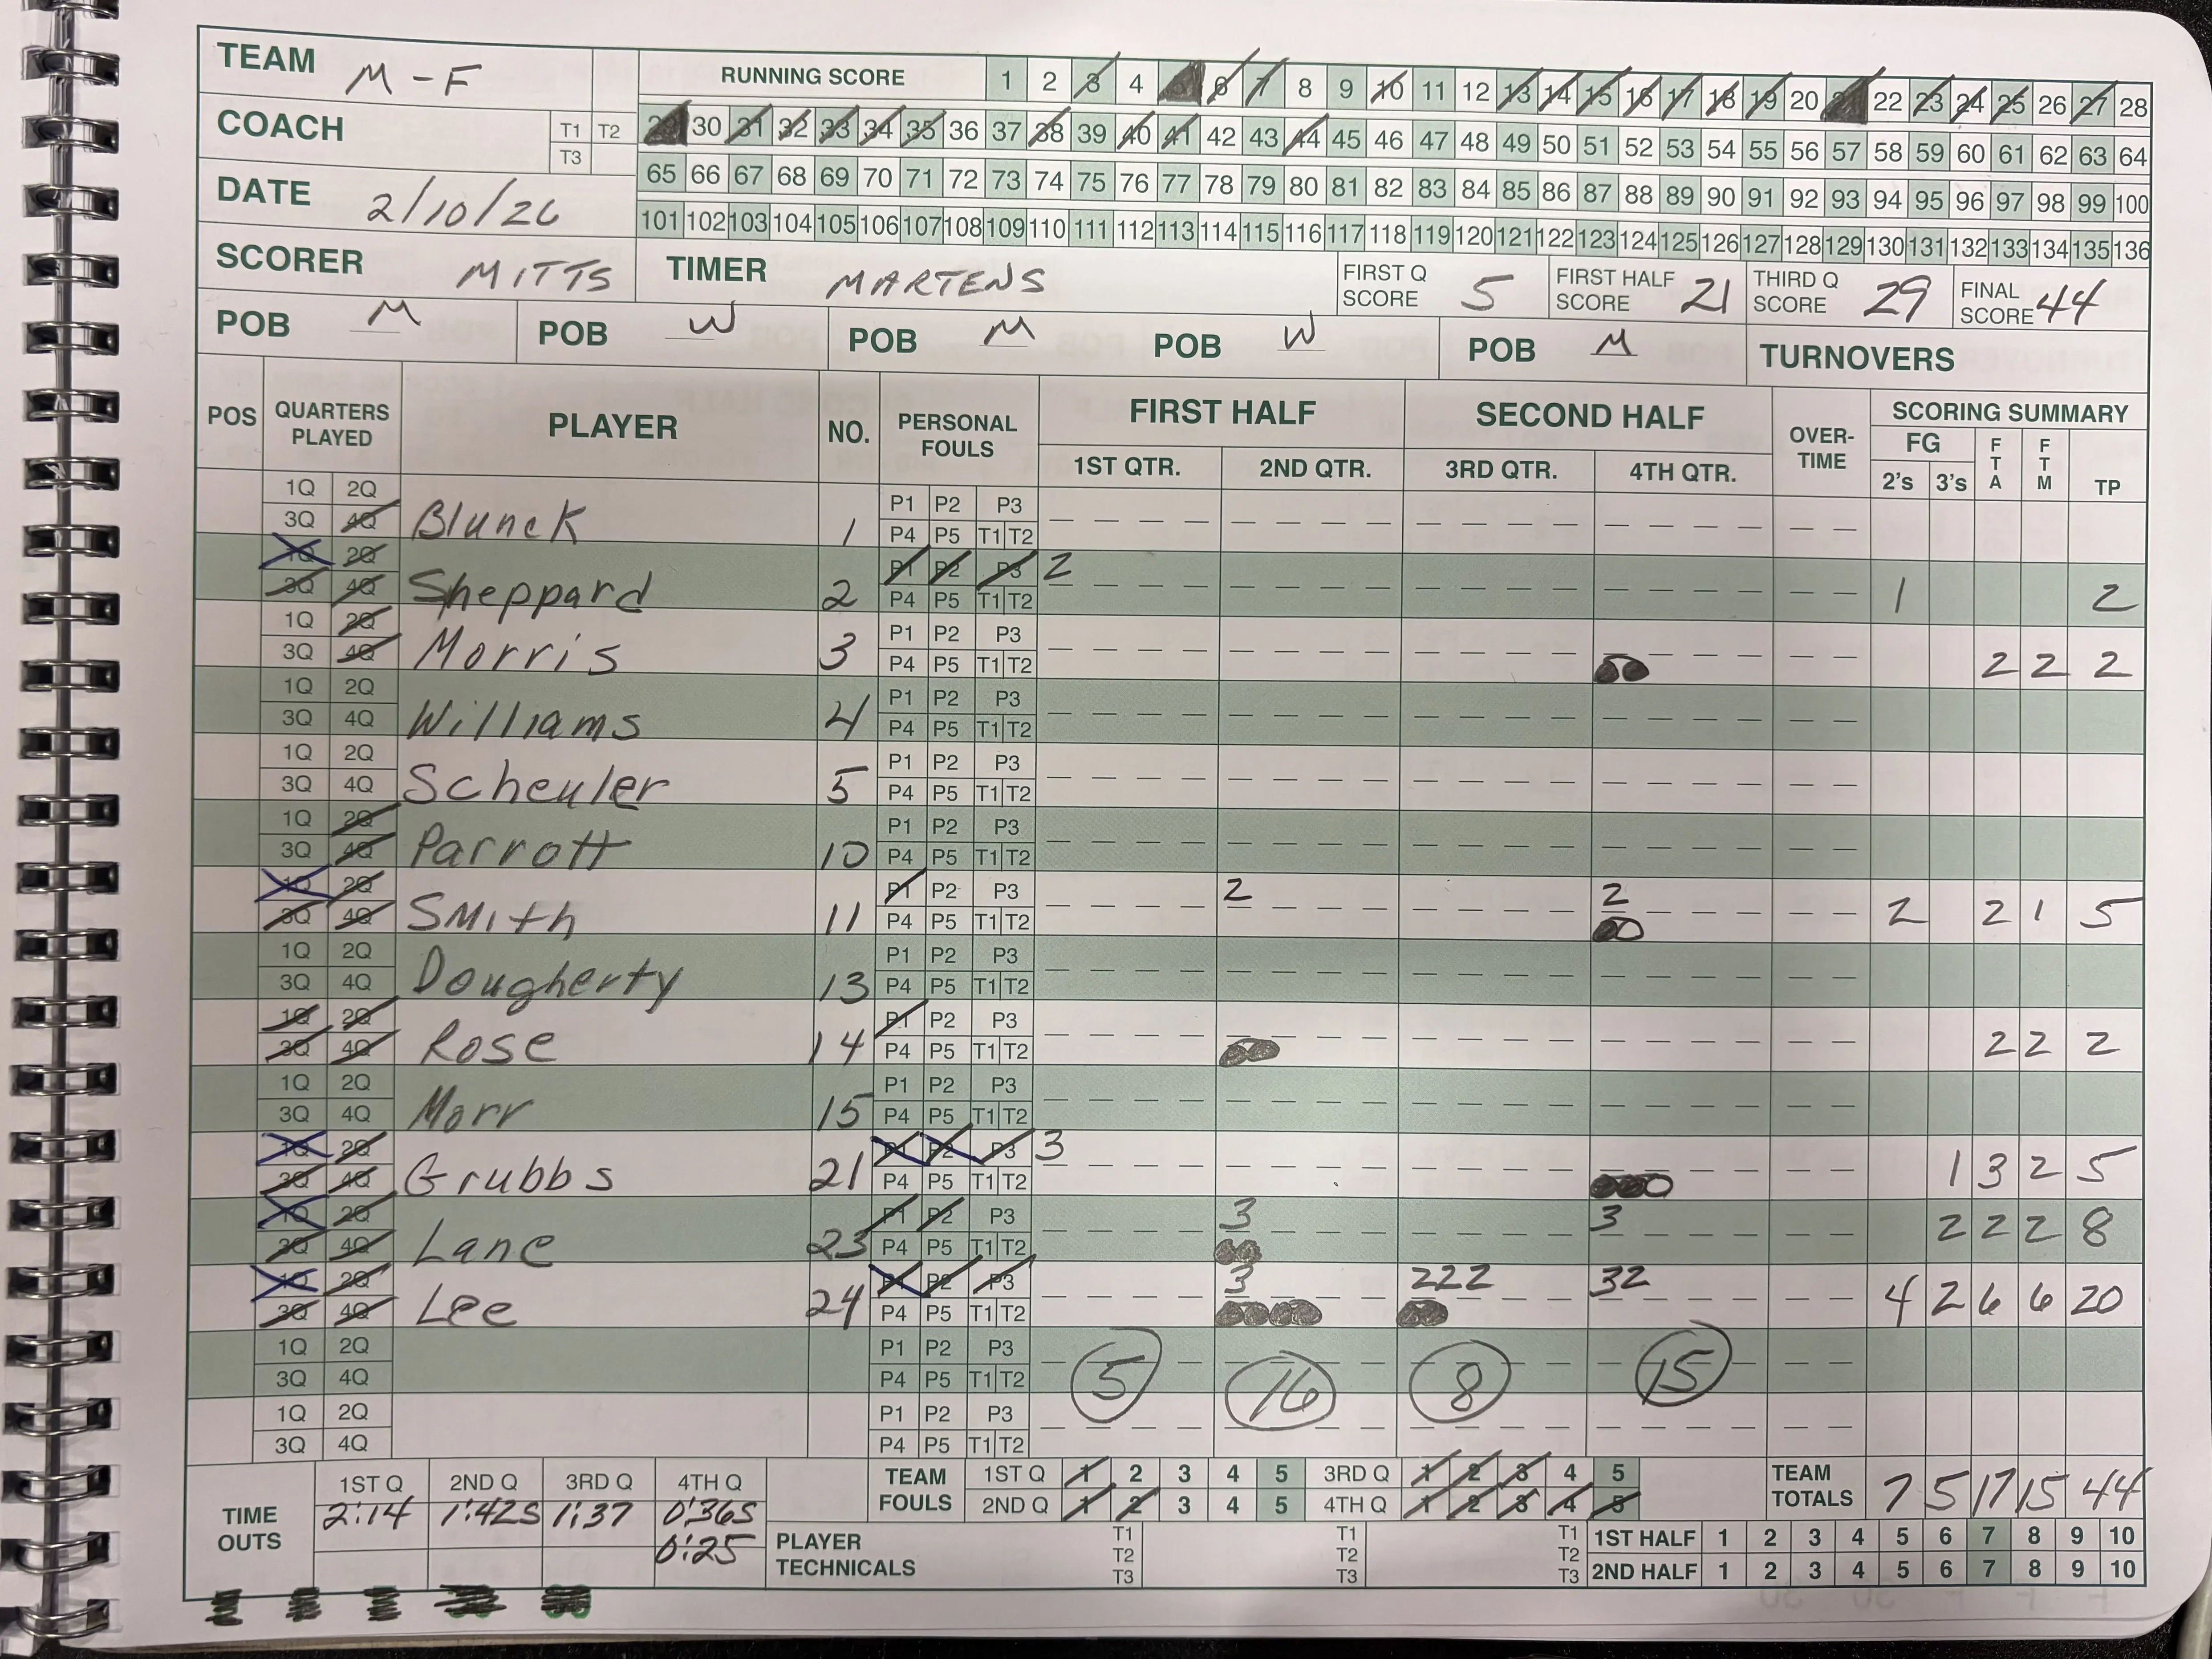 TEAM M-F RUNNING SCORE 1 2 3 4 5 6 7 8 9 10 11 12 13 14 15 16 17 18 19 20 21 22 23 24 25 26 27 28
COACH T1 T2 29 30 31 32 33 34 35 36 37 38 39 40 41 42 43 44 45 46 47 48 49 50 51 52 53 54 55 56 57 58 59 60 61 62 63 64
T3
DATE 2/10/26 65 66 67 68 69 70 71 72 73 74 75 76 77 78 79 80 81 82 83 84 85 86 87 88 89 90 91 92 93 94 95 96 97 98 99 100
101 102 103 104 105 106 107 108 109 110 111 112 113 114 115 116 117 118 119 120 121 122 123 124 125 126 127 128 129 130 131 132 133 134 135 136
SCORER MITTS TIMER MARTENS FIRST Q SCORE 5 FIRST HALF SCORE 21 THIRD Q SCORE 29 FINAL SCORE 44
POB M POB W POB M POB W POB M TURNOVERS
POS QUARTERS PLAYED PLAYER NO. PERSONAL FOULS FIRST HALF SECOND HALF OVER-TIME SCORING SUMMARY
1ST QTR. 2ND QTR. 3RD QTR. 4TH QTR. FG 2's 3's FTA FTM TP
1Q 2Q P1 P2 P3
3Q 4Q Blunck 1 P4 P5 T1 T2
1Q 2Q P1 P2 P3 2
3Q 4Q Sheppard 2 P4 P5 T1 T2 1 2
1Q 2Q P1 P2 P3
3Q 4Q Morris 3 P4 P5 T1 T2 2 2 2
1Q 2Q P1 P2 P3
3Q 4Q Williams 4 P4 P5 T1 T2
1Q 2Q P1 P2 P3
3Q 4Q Scheuler 5 P4 P5 T1 T2
1Q 2Q P1 P2 P3
3Q 4Q Parrott 10 P4 P5 T1 T2
1Q 2Q P1 P2 P3 2 2
3Q 4Q Smith 11 P4 P5 T1 T2 2 2 1 5
1Q 2Q P1 P2 P3
3Q 4Q Dougherty 13 P4 P5 T1 T2
1Q 2Q P1 P2 P3
3Q 4Q Rose 14 P4 P5 T1 T2 2 2 2
1Q 2Q P1 P2 P3
3Q 4Q Morr 15 P4 P5 T1 T2
1Q 2Q P1 P2 P3 3
3Q 4Q Grubbs 21 P4 P5 T1 T2 1 3 2 5
1Q 2Q P1 P2 P3 3 3
3Q 4Q Lane 23 P4 P5 T1 T2 2 2 2 8
1Q 2Q P1 P2 P3 3 222 32
3Q 4Q Lee 24 P4 P5 T1 T2 4 2 6 6 20
1Q 2Q P1 P2 P3
3Q 4Q P4 P5 T1 T2 5 16 8 15
1Q 2Q P1 P2 P3
3Q 4Q P4 P5 T1 T2
TIME OUTS 1ST Q 2ND Q 3RD Q 4TH Q TEAM FOULS 1ST Q 1 2 3 4 5 3RD Q 1 2 3 4 5 TEAM TOTALS 7 5 17 15 44
2:14 1:42S 1:37 0:36S 2ND Q 1 2 3 4 5 4TH Q 1 2 3 4 5
0:25 PLAYER TECHNICALS T1 T1 T1 1ST HALF 1 2 3 4 5 6 7 8 9 10
T2 T2 T2
T3 T3 T3 2ND HALF 1 2 3 4 5 6 7 8 9 10